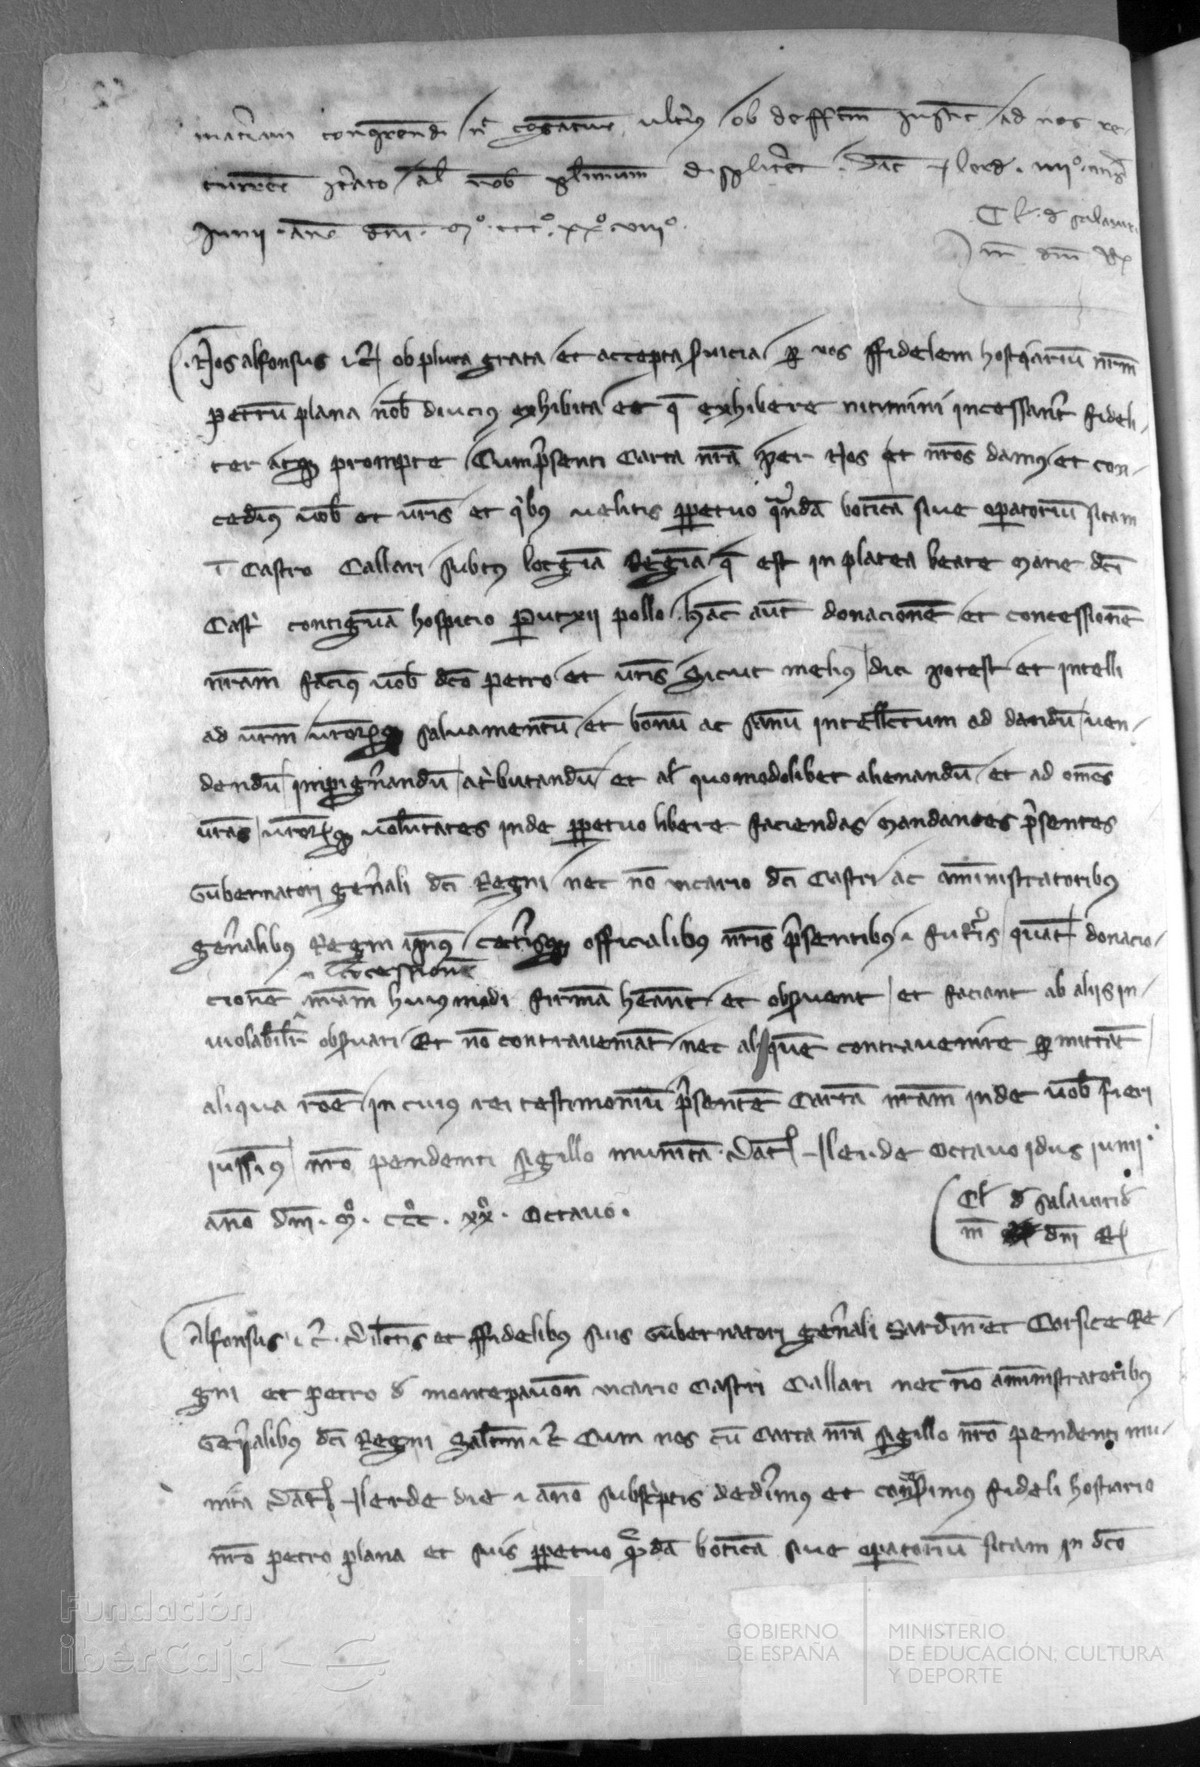 materiam conquerendi nec cogatur ulterius ob deffectum justicie ad nos re-
currere iterato al nob plurimum displiceret. Dat Ilerde. IIIIº.
Junii. anno dni. Mº. CCCº. XXº. VIIIº.
Cl. de Salavert
m dni R
Nos Alfonsus etc ob plura grata et accepta servicia per vos ffidelem hostiarium nrm
Petrum Plana nob diucius exhibita et que exhibere nitimini incessanter fideli-
ter atque prompte Cum presenti carta nra per Nos et nros damus et con-
cedimus vob et vris et quibus velitis perpetuo quandam boticam sive operatorium sitam
in Castro Callari subtus logiam Regiam que est in platea beate Marie dci
Castri contiguam hospicio Putxii Pollo. Hanc aut donacionem et concessionem
nram facimus vob dco Petro et vris Sicut melius dici potest et intelli
ad vrm vrorumque salvamentum et bonum ac sanum intellectum ad dandum ven-
dendum impignorandum atributandum et al quomodolibet alienandum et ad omnes
vras vrorumque voluntates inde perpetuo libere faciendas Mandantes presentes
Gubernatori generali dci Regni nec non vicario dci Castri ac administratoribus
generalibus Regni ipsius ceterisque officialibus nris presentibus et futuris quatenus donacio-
et concessionem
cionem nram huiusmodi firmam habeant et observent et faciant ab aliis in-
violabiliter observari Et non contraveniant nec aliquem contravenire permittant
aliqua racione in cuius rei testimonium presentem Cartam nram inde vob fieri
iussimus nro pendenti sigillo munitam. Dat Ilerde Octavo idus iunii.
anno dni. Mº. CCCº. XXº. Octavo.
Cl de Salavert
m dni R
Alfonsus etc. Dilectis et ffidelibus suis Gubernatori generali Sardinie et Corsice Re-
gni et Petro de Montepavon vicario Castri Callari nec non administratoribus
Generalibus dci Regni Saltm etc Cum nos cum carta nra sigillo nro pendenti mu-
nita Dat Ilerde die et anno subscriptis dederimus et concesserimus fideli hostiario
nro Petro Plana et suis perpetuo quandam boticam sive operatorium sitam in dco
Fundación
iberCaja
GOBIERNO
DE ESPAÑA
MINISTERIO
DE EDUCACIÓN, CULTURA
Y DEPORTE